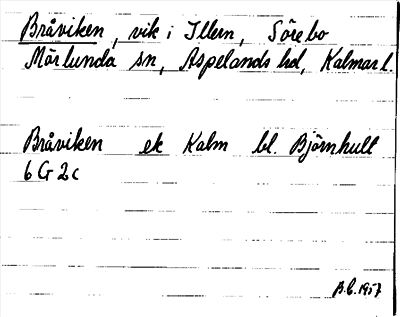 Bråviken, vik i Illern, Sörebo
Mörlunda sn, Aspelands hd, Kalmar l.
Bråviken ek Kalm bl. Björnhult
6G2c
B.C. 1957